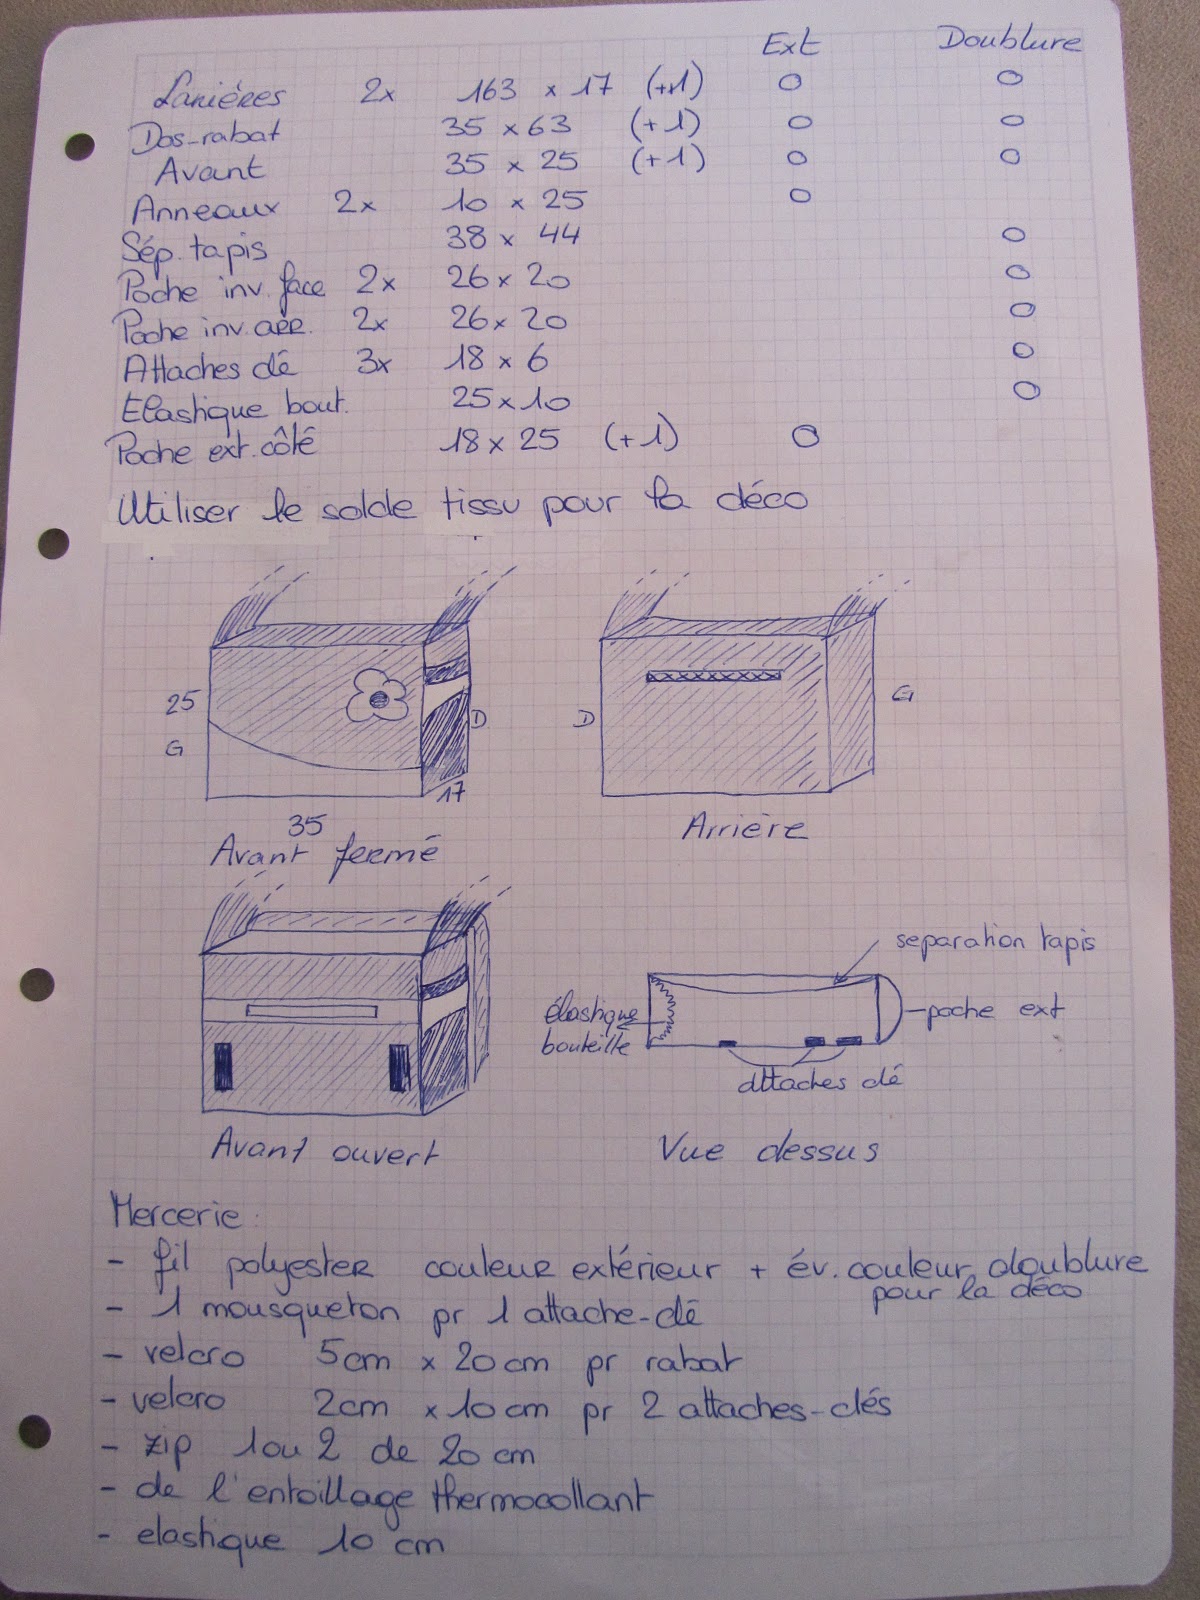 Ext Doublure
Lanières 2x 163 x 17 (+1) O O
Dos-rabat 35 x 63 (+1) O O
Avant 35 x 25 (+1) O O
Anneaux 2x 10 x 25 O
Sép. tapis 38 x 44 O
Poche inv. face 2x 26 x 20 O
Poche inv. arr. 2x 26 x 20 O
Attaches clé 3x 18 x 6 O
Elastique bout. 25 x 10 O
Poche ext. côté 18 x 25 (+1) O
Utiliser le solde tissu pour la déco
25
G
D
17
35
Avant fermé
D
G
Arrière
Avant ouvert
separation tapis
élastique
bouteille
poche ext
attaches clé
Vue dessus
Mercerie :
- fil polyester couleur extérieur + év. couleur doublure
pour la déco
- 1 mousqueton pr 1 attache-clé
- velcro 5cm x 20cm pr rabat
- velcro 2cm x 10cm pr 2 attaches-clés
- zip 1 ou 2 de 20 cm
- de l'entoillage thermocollant
- elastique 10 cm